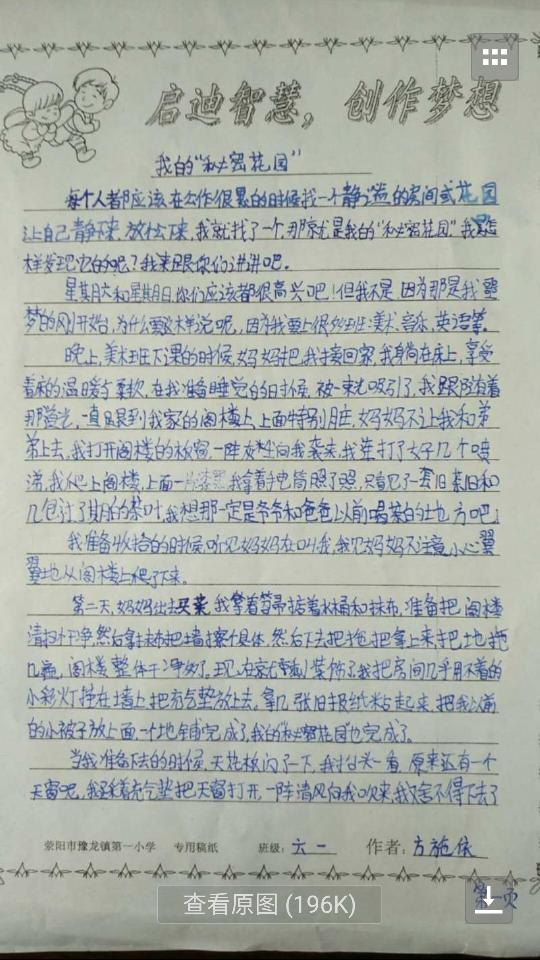 启迪智慧，创作梦想
我的"秘密花园"
每个人都应该在工作很累的时候找一个静谧的房间或花园
让自己静下来,放松下来,我就找了一个,那就是我的"秘密花园"我是怎
样发现它的呢？我来跟你们讲讲吧。
星期六和星期日,你们应该都很高兴吧！但我不是,因为那是我噩
梦的刚开始,为什么要这样说呢,因为我要上很多班:美术,音乐,英语等。
晚上,美术班下课的时候,妈妈把我接回家,我躺在床上,享受
着床的温暖与柔软,在我准备睡觉的时候,被一束光吸引了,我跟随着
那道光,一直跟到我家的阁楼上,上面特别脏,妈妈不让我和弟
弟上去,我打开阁楼的板窗,一阵灰尘向我袭来,我连打了好几个喷
嚏,我爬上阁楼,上面一片漆黑,我拿着手电筒照了照,只看见了一套旧茶具和
几包过了期的茶叶,我想那一定是爷爷和爸爸以前喝茶的地方吧。
我准备收拾的时候,听见妈妈在叫我,我见妈妈不注意,小心翼
翼地从阁楼上爬了下来。
第二天,妈妈出去买菜,我拿着笤帚掂着水桶和抹布,准备把阁楼
清扫干净,然后拿抹布把墙擦个具体,然后下去把拖把拿上来,把地拖
几遍,阁楼整体干净多了。现在就要装饰了,我把房间几乎用不着的
小彩灯挂在墙上,把充气垫放上去,拿几张旧报纸粘起来,把我以前
的小被子放上面,一个地铺完成了,我的"秘密花园"也完成了。
当我准备下去的时候,天花板闪了一下,我抬头一看,原来还有一个
天窗呢,我踩着充气垫把天窗打开,一阵清风向我吹来,我又舍不得下去了
荥阳市豫龙镇第一小学 专用稿纸 班级:六一 作者:方施依
第一页
查看原图 (196K)